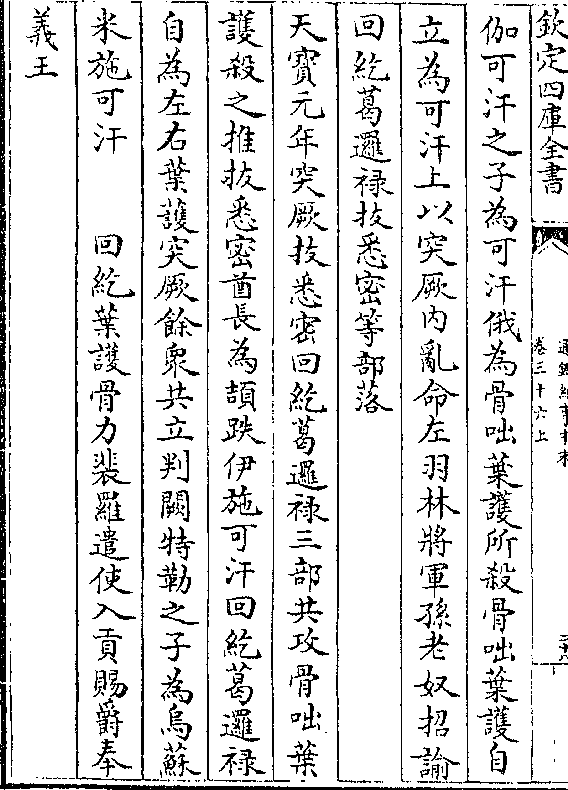 欽定四庫全書
通鑑紀事本末
卷三十六上
伽可汗之子為可汗俄為骨咄葉護所殺骨咄葉護自
立為可汗上以突厥内亂命左羽林將軍孫老奴招諭
回紇葛邏禄拔悉密等部落
天寶元年突厥拔悉密回紇葛邏禄三部共攻骨咄葉
護殺之推拔悉密酋長為頡跌伊施可汗回紇葛邏禄
自為左右葉護突厥餘衆共立判闕特勒之子為烏蘇
米施可汗　　回紇葉護骨力裴羅遣使入貢賜爵奉
義王